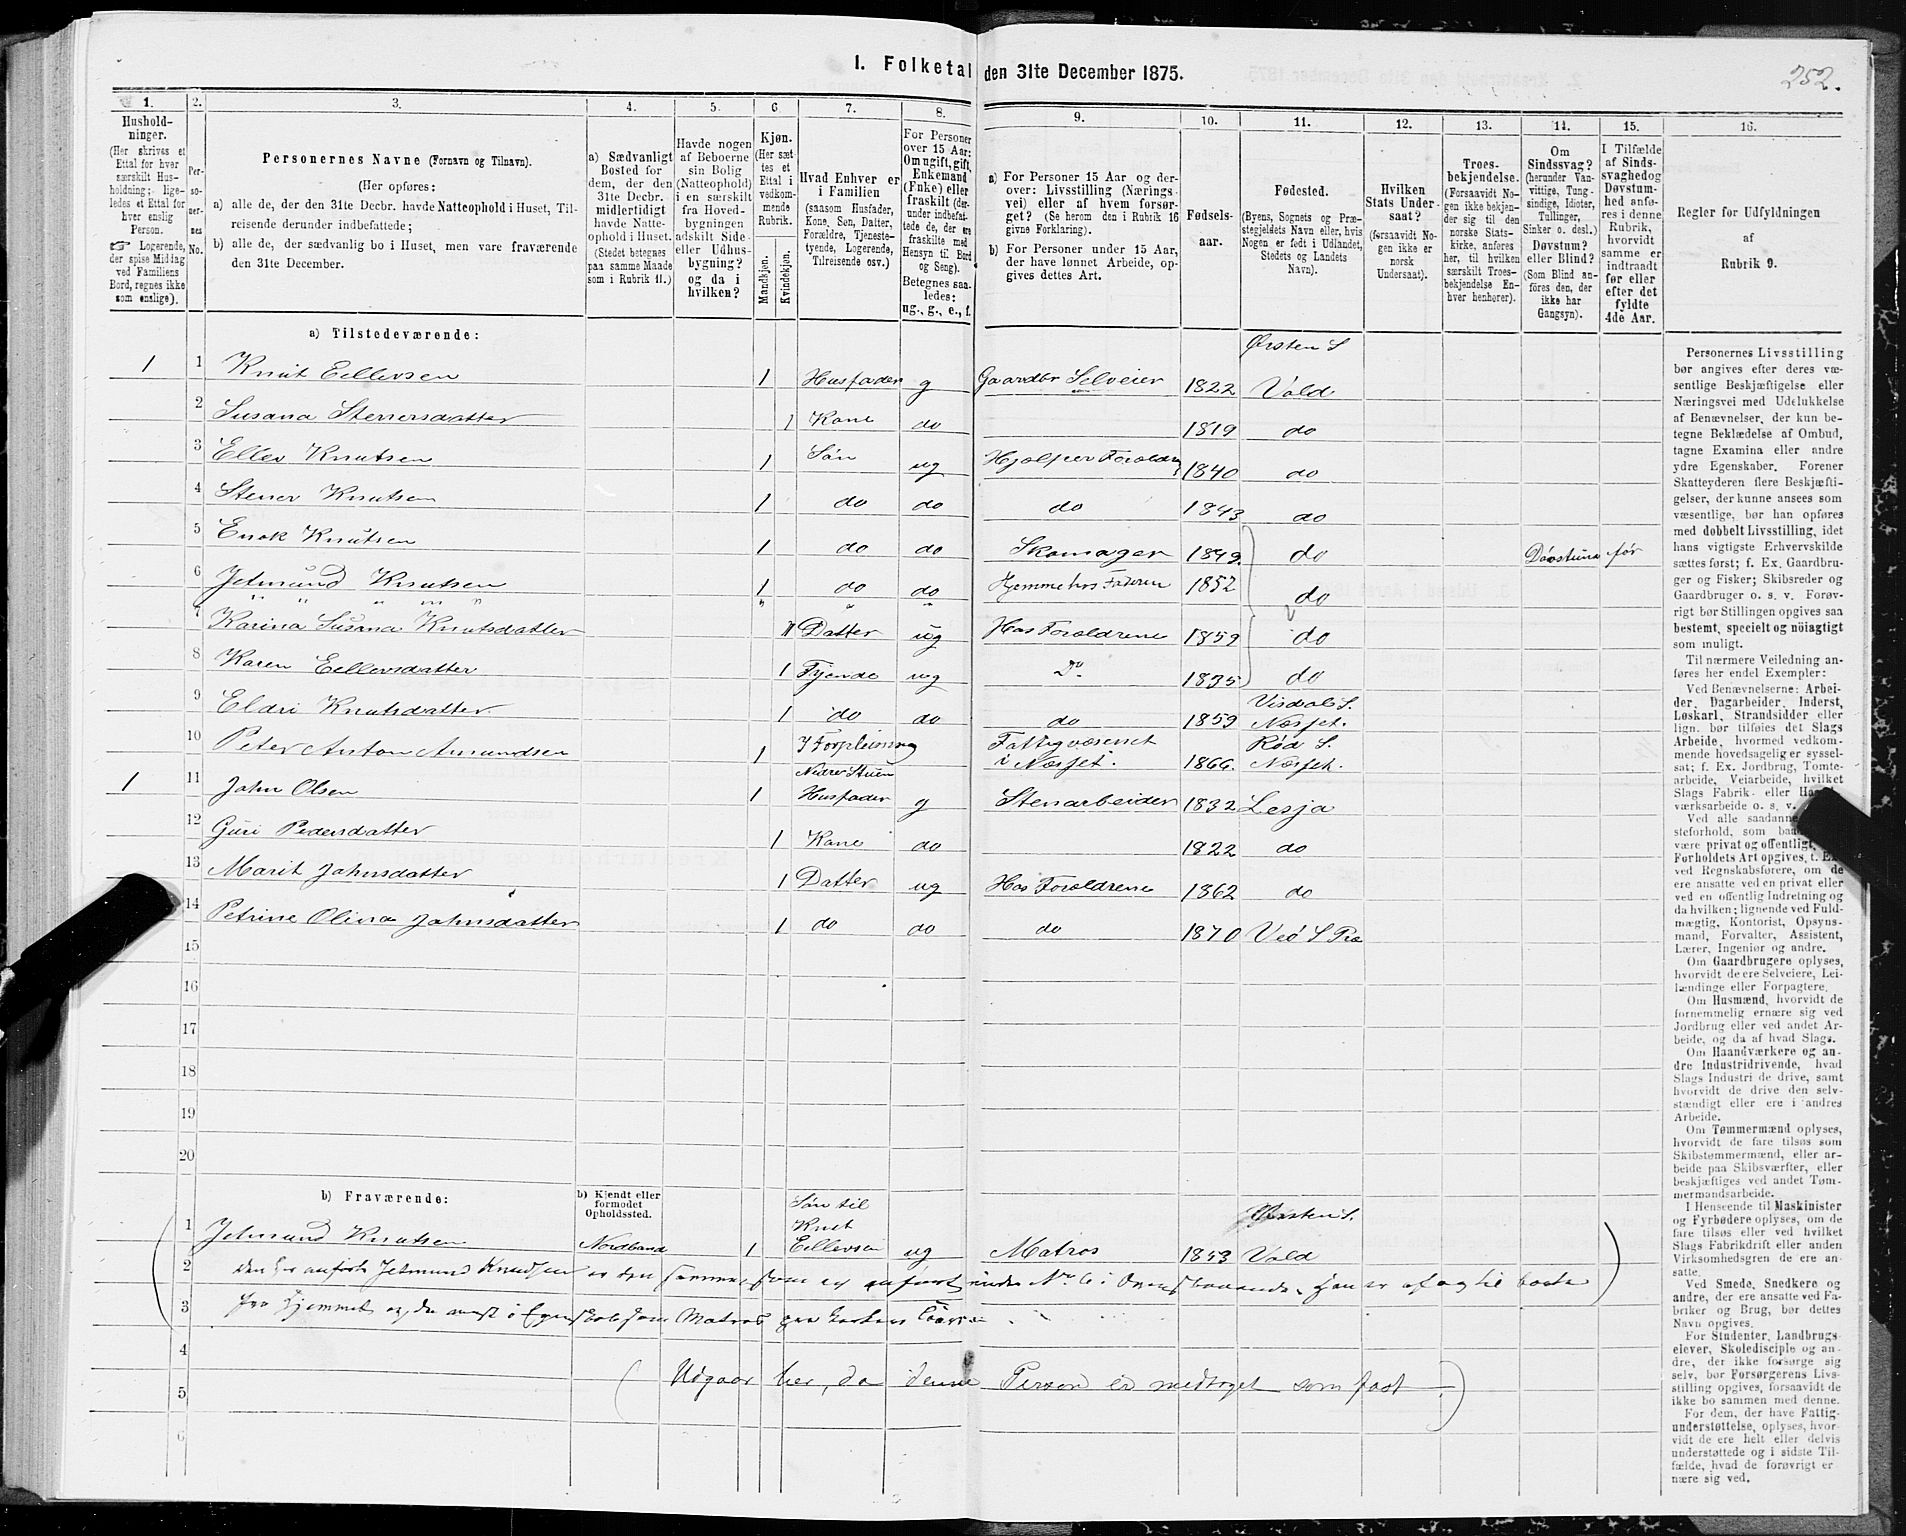 1. Folketal den 31te December 1875.
252.
1.
Hushold-
ninger.
(Her skrives et
Ettal for hver
særskilt Hus-
holdning; lige-
ledes et Ettal for
hver enslig
Person.
☞ Logerende,
der spise Middag
ved Familiens
Bord, regnes ikke
som enslige).
2.
Per-
so-
ner-
nes
No.
3.
Personernes Navne (Fornavn og Tilnavn).
(Her opføres:
a) alle de, der den 31te Decbr. havde Natteophold i Huset, Til-
reisende derunder indbefattede;
b) alle de, der sædvanlig bo i Huset, men vare fraværende
den 31te December.
4.
a) Sædvanligt
Bosted for
dem, der den
31te Decbr.
midlertidigt
havde Natte-
ophold i Huset.
(Stedet betegnes
paa samme Maade
som i Rubrik 11.)
5.
Havde nogen
af Beboerne
sin Bolig
(Natteophold)
i en særskilt
fra Hoved-
bygningen
adskilt Side-
eller Udhus-
bygning?
og da i
hvilken?
6.
Kjøn.
(Her sæt-
tes et
Ettal i
vedkom-
mende
Rubrik.
Mandkjøn.
Kvindekjøn.
7.
Hvad Enhver er
i Familien
(saasom Husfader,
Kone, Søn, Datter,
Forældre, Tjeneste-
tyende, Logerende,
Tilreisende osv.)
8.
For Personer
over 15 Aar:
Om ugift, gift,
Enkemand
(Enke) eller
fraskilt (der-
under indbefat-
tede de, der ere
fraskilte med
Hensyn til Bord
og Seng).
Betegnes saa-
ledes:
ug., g., e., f.
9.
a) For Personer 15 Aar og der-
over: Livsstilling (Nærings-
vei) eller af hvem forsør-
get? (Se herom den i Rubrik 16
givne Forklaring).
b) For Personer under 15 Aar,
der have lønnet Arbeide, op-
gives dettes Art.
10.
Fødsels-
aar.
11.
Fødested.
(Byens, Sognets og Præ-
stegjeldets Navn eller, hvis
Nogen er født i Udlandet,
Stedets og Landets
Navn).
12.
Hvilken
Stats Under-
saat?
(forsaavidt No-
gen ikke er
norsk
Undersaat).
13.
Troes-
bekjendelse.
(Forsaavidt No-
gen ikke bekjen-
der sig til den
norske Stats-
kirke, anføres
her, til hvilken
særskilt Troes-
bekjendelse En-
hver henhører).
14.
Om
Sindssvag?
(herunder Van-
vittige, Tung-
sindige, Idioter,
Tullinger,
Sinker o. desl.)
Døvstum?
eller Blind?
(Som Blind an-
føres den, der
ikke har
Gangsyn).
15.
I Tilfælde
af Sinds-
svaghed og
Døvstum-
hed anfø-
res i denne
Rubrik,
hvorvidt
samme er
indtraadt
før eller
efter det
fyldte
4de Aar.
16.
Regler for Udfyldningen
af
Rubrik 9.
a) Tilstedeværende:
Ørsten S
1 1 Knut Eellevsen 1 Husfader g Gaardbr Selveier 1822 Vold
2 Susana Stenersdatter 1 Kone do 1819 do
3 Ellev Knutsen 1 Søn ug Hjælper Foroldr 1840 do
4 Stener Knutsen 1 do do do 1843 do
5 Enok Knutsen 1 do do Skomager 1849. do Døvstum før
6 Jetmund Knutsen 1 do do Hjemme hos Faderen 1852 do
7 Karina Susana Knutsdatter 1 Datter ug Hos Foroldrene 1859 do
8 Karen Eellevsdatter 1 Tjende ug Do 1835 do
9 Eldri Knutsdatter 1 do do do 1859 Visdal S. Næsset.
10 Peter Anton Amundsen 1 I Forpleining Fattigvæsenet i Næsset. 1866. Rød S. Næsset.
Nedre Stuen
1 11 John Olsen 1 Husfader g Stenarbeider 1832 Lesja
12 Guri Pedersdatter 1 Kone do 1822 do
13 Marit Johnsdatter 1 Datter ug Hos Foroldrene 1862 do
14 Petrine Olina Johnsdatter 1 do do do 1870 Veø S Præ
15
16
17
18
19
20
b) Fraværende:
b) Kjendt eller
formodet
Opholdssted.
Søn til
Knut
Ørsten S.
1 Jetmund Knutsen Nordland 1 Eellevsen ug Matros 1853 Vold
2 den her anførte Jetmund Knudsen er den samme, som er anført under No 6 i Ovenstaaende, Han er af og til borte
3 fra Hjemmet og
4
(Udgaar her, da denne Person er medtaget som fast.)
5
6
Personernes Livsstilling
bør angives efter deres væ-
sentlige Beskjæftigelse eller
Næringsvei med Udelukkelse
af Benævnelser, der kun be-
tegne Beklædelse af Ombud,
tagne Examina eller andre
ydre Egenskaber. Forener
Skatteyderen flere Beskjæfti-
gelser, der kunne ansees som
væsentlige, bør han opføres
med dobbelt Livsstilling, idet
hans vigtigste Erhvervskilde
sættes først; f. Ex. Gaardbru-
ger og Fisker; Skibsreder og
Gaardbruger o. s. v. Forøv-
rigt bør Stillingen opgives saa
bestemt, specielt og nöiagtigt
som muligt.
Til nærmere Veiledning an-
føres her endel Exempler:
Ved Benævnelserne: Arbei-
der, Dagarbeider, Inderst,
Løskarl, Strandsidder eller
lign. bør tilføies det Slags
Arbeide, hvormed vedkom-
mende hovedsagelig er syssel-
sat; f. Ex. Jordbrug, Tomte-
arbeide, Veiarbeide, hvilket
Slags Fabrik- eller
værksarbeide o. s. v.
Ved alle saadanne
steforhold, som
være privat og offentligt,
Forholdets Art opgives, t. Ex.
ved Regnskabsførere, om de
ere ansatte ved en privat eller
ved en offentlig Indretning og
da hvilken; lignende ved Fuld-
mægtig, Kontorist, Opsyns-
mand, Forvalter, Assistent,
Lærer, Ingeniør og andre.
Om Gaardbrugere oplyses,
hvorvidt de ere Selveiere, Lei-
lændinge eller Forpagtere.
Om Husmænd, hvorvidt de
fornemmelig ernære sig ved
Jordbrug eller ved andet Ar-
beide, og da af hvad Slags.
Om Haandværkere og an-
dre Industridrivende, hvad
Slags Industri de drive, samt
hvorvidt de drive den selv-
stændigt eller ere i andres
Arbeide.
Om Tømmermænd oplyses,
hvorvidt de fare tilsøs som
Skibstømmermænd, eller ar-
beide paa Skibsværfter, eller
beskjæftiges ved andet Tøm-
mermandsarbeide.
I Henseende til Maskinister
og Fyrbødere oplyses, om de
fare tilsøs eller ved hvilket
Slags Fabrikdrift eller anden
Virksomhedsgren de ere an-
satte.
Ved Smede, Snedkere og
andre, der ere ansatte ved Fa-
briker og Brug, bør dettes
Navn opgives.
For Studenter, Landbrugs-
elever, Skoledisciple og an-
dre, der ikke forsørge sig
selv, bør Forsørgerens Livs-
stilling opgives, forsaavidt de
ikke bo sammen med denne.
For dem, der have Fattig-
understøttelse, oplyses, hvor-
vidt de ere helt eller delvis
understøttede og i sidste Til-
fælde, hvad de forøvrigt er-
nære sig ved.